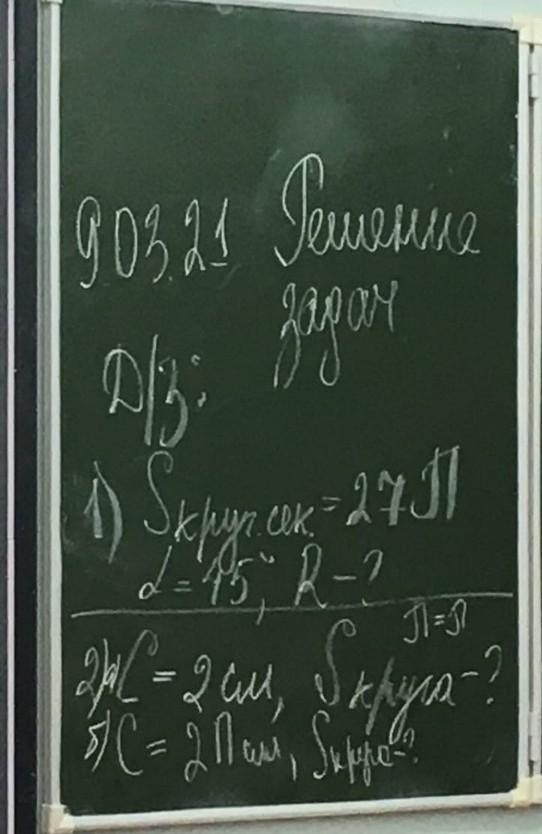 9.03.21 Решение
задач
Д/З:
1) Sкруг.сек. = 27П
α = 15°, R – ?
П=П
2)а) C = 2 см, Sкруга – ?
б) C = 2П см, Sкруга – ?